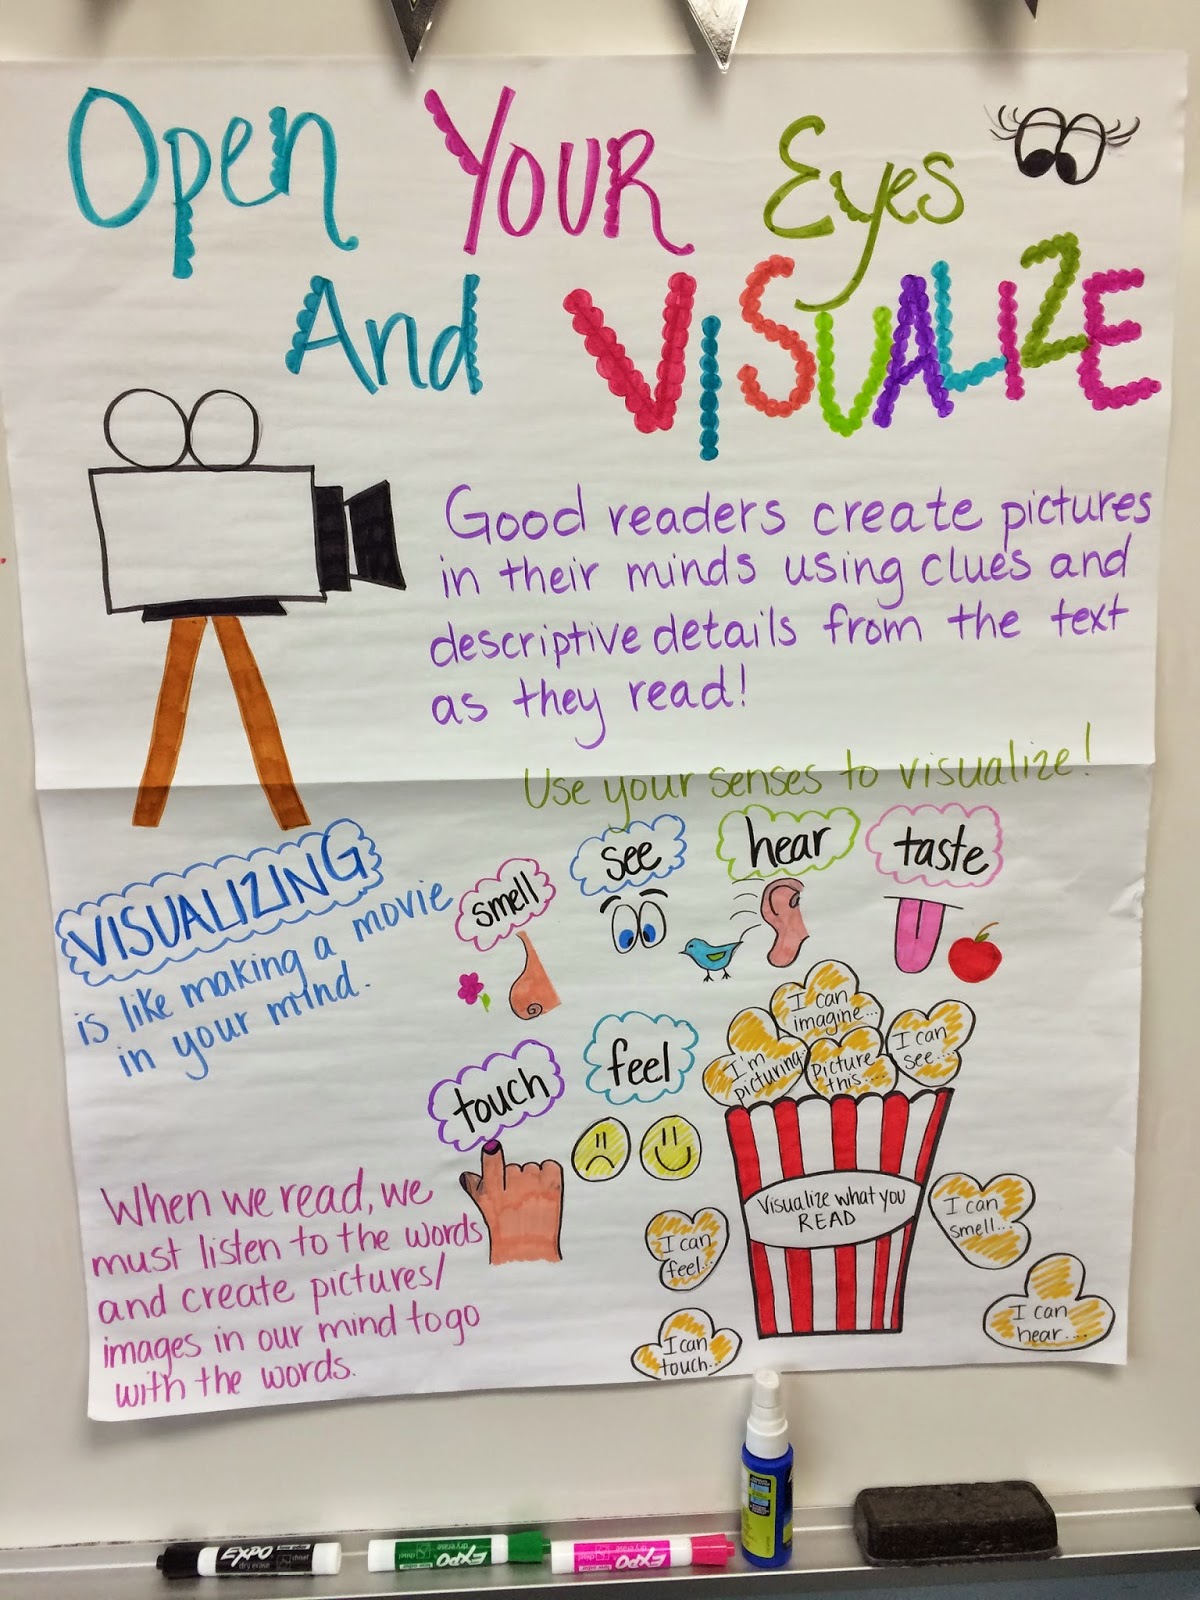 Open Your Eyes
And VISUALIZE
Good readers create pictures
in their minds using clues and
descriptive details from the text
as they read!
Use your senses to visualize!
VISUALIZING
is like making a movie
in your mind.
smell
see
hear
taste
touch
feel
I can
imagine...
I'm
picturing...
Picture
this....
I can
see....
Visualize what you
READ
I can
feel...
I can
smell...
I can
touch...
I can
hear....
When we read, we
must listen to the words
and create pictures/
images in our mind to go
with the words.
EXPO
dry erase
EXPO
dry erase
EXPO
dry erase